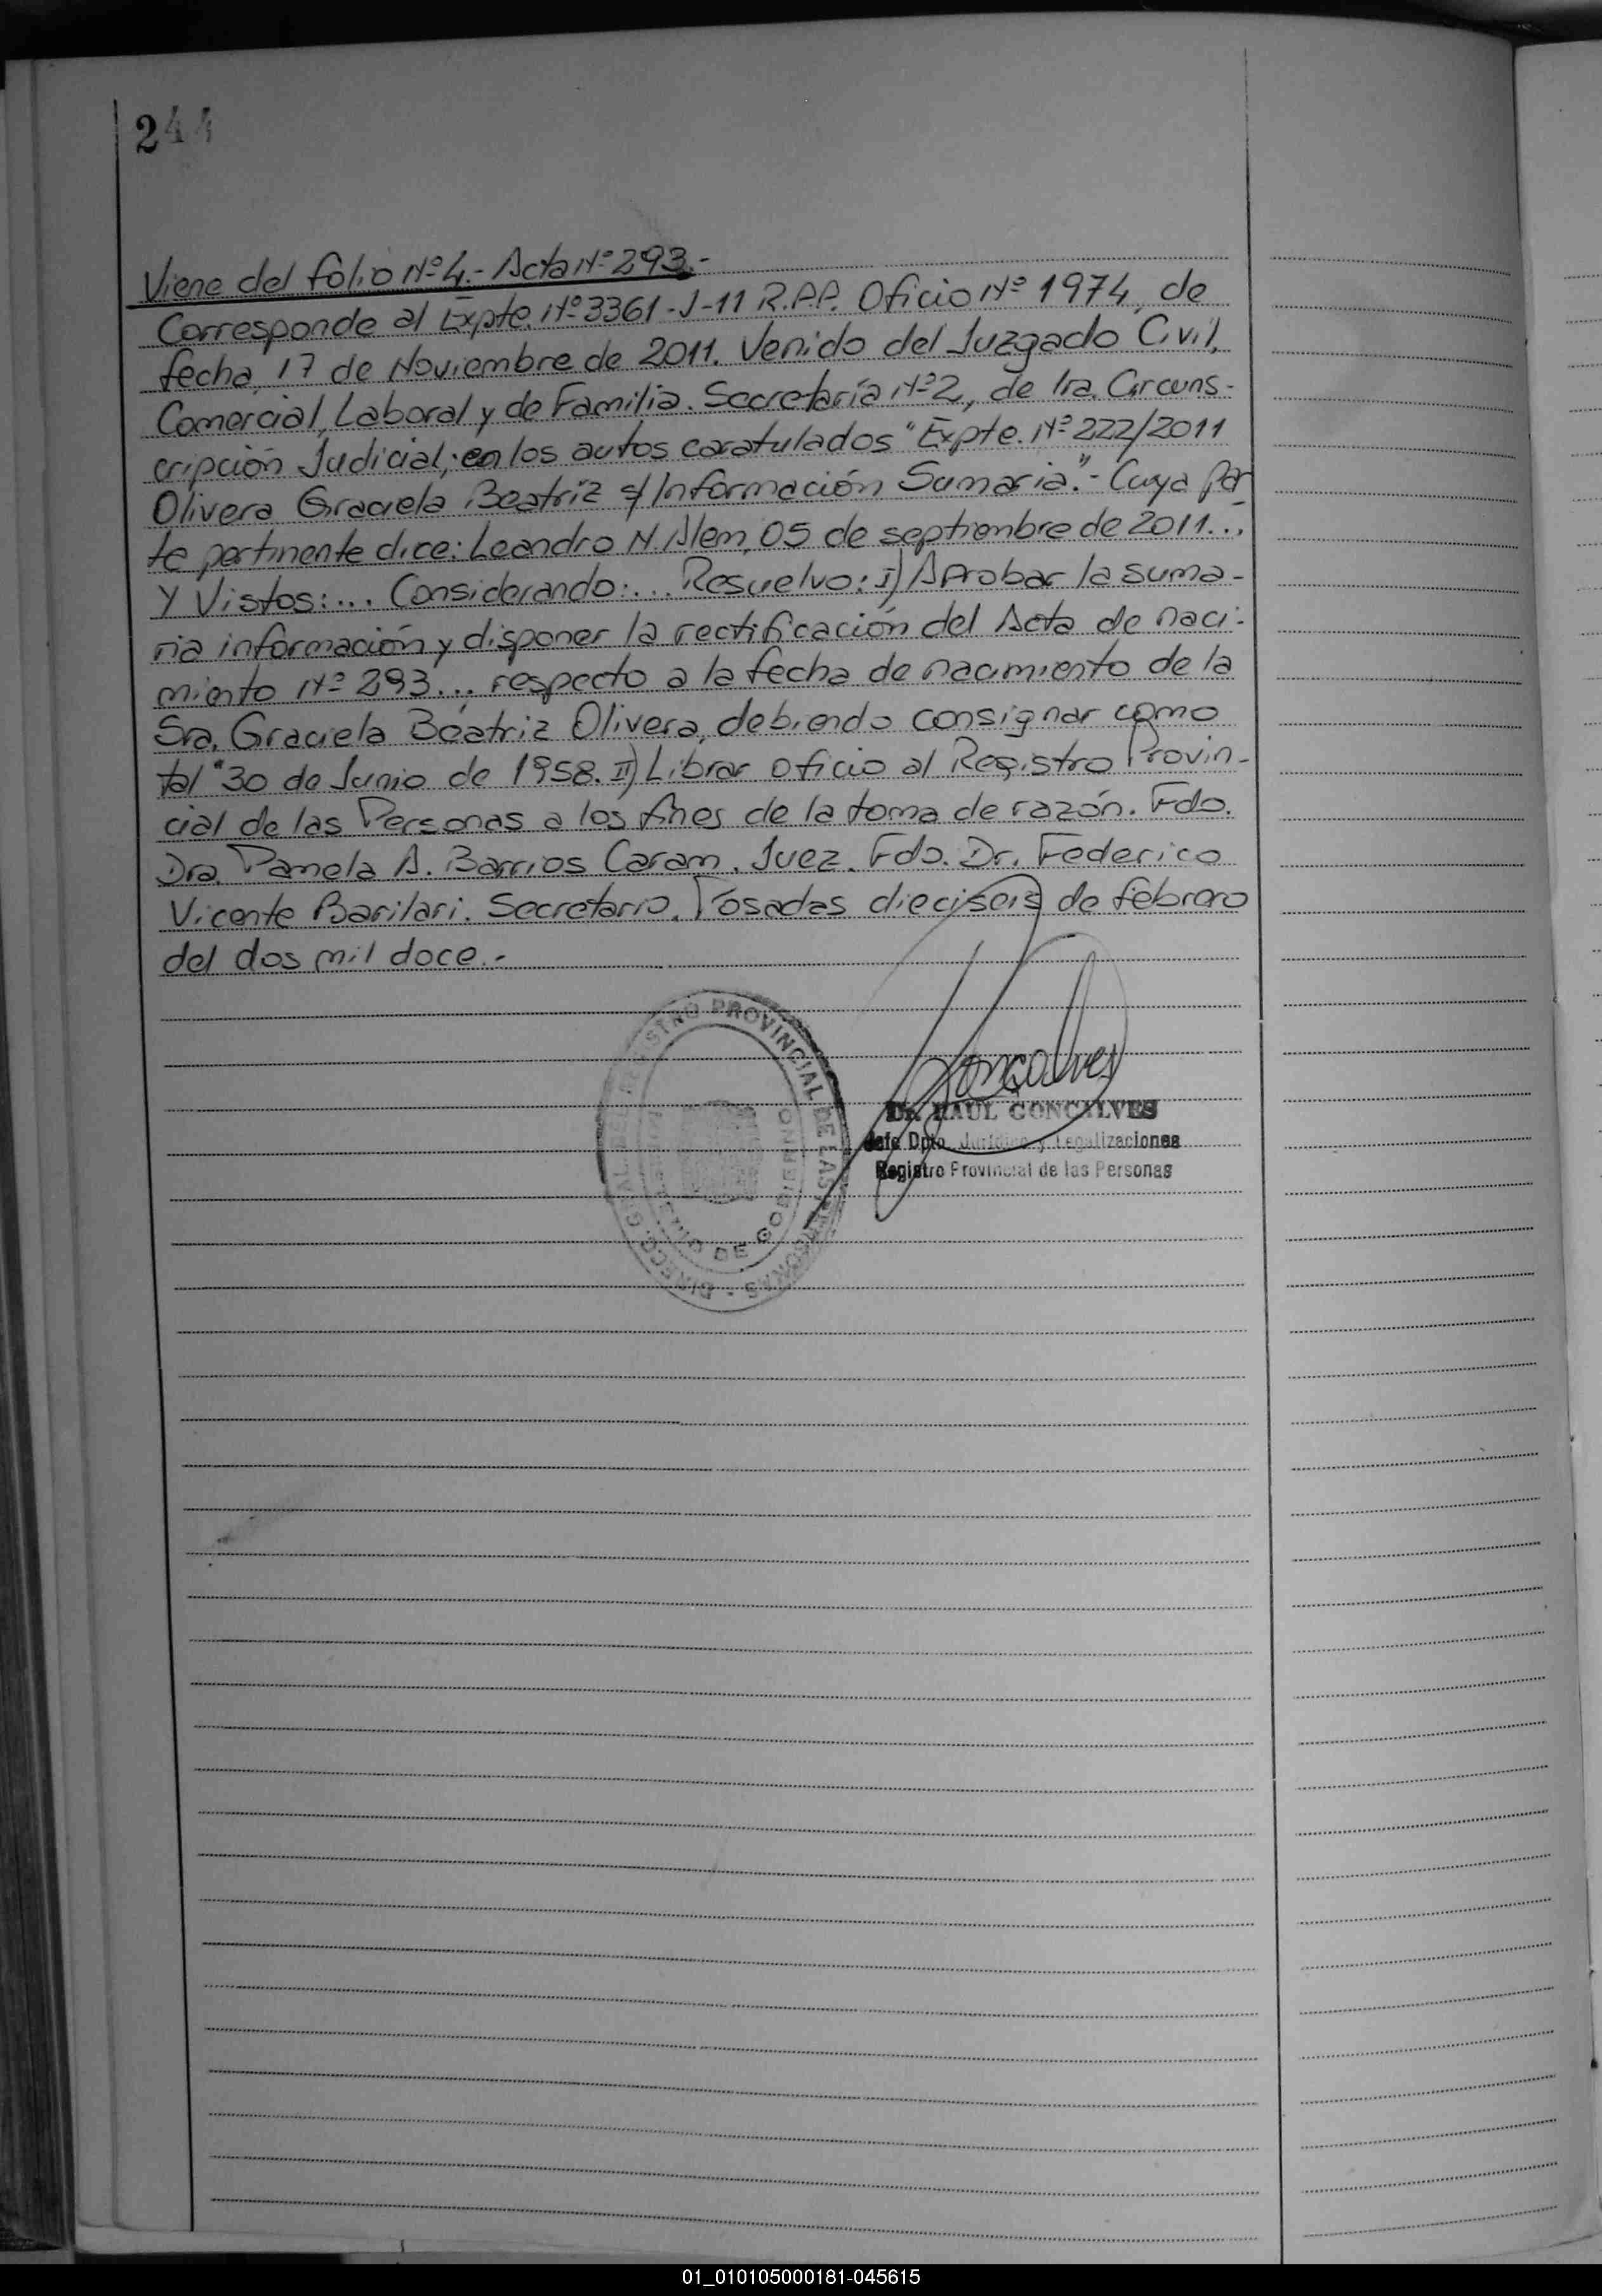 244
Viene del folio Nº 4.- Acta Nº 293.-
Corresponde al Expte. Nº 3361-J-11 R.P.P. Oficio Nº 1974, de
fecha, 17 de Noviembre de 2011. Venido del Juzgado Civil,
Comercial, Laboral y de Familia. Secretaría Nº 2, de 1ra. Circuns-
cripción Judicial; en los autos caratulados "Expte. Nº 222/2011
Olivera Graciela Beatriz s/ Información Sumaria".- Cuya Par
te pertinente dice: Leandro N. Alem, 05 de septiembre de 2011...
Y Vistos:... Considerando:... Resuelvo: I) Aprobar la suma-
ria información y disponer la rectificación del Acta de naci-
miento Nº 293... respecto a la fecha de nacimiento de la
Sra. Graciela Beatriz Olivera, debiendo consignar como
tal "30 de Junio de 1958. II) Librar oficio al Registro Provin-
cial de las Personas a los fines de la toma de razón. Fdo.
Dra. Pamela A. Barrios Caram. Juez. Fdo. Dr. Federico
Vicente Barilari. Secretario. Posadas dieciseis de febrero
del dos mil doce.-
REGISTRO PROVINCIAL DE LAS PERSONAS - DIRECC. GRAL. DEL
MINISTERIO DE GOBIERNO
Gonçalves
Dr. RAUL GONCALVES
Jefe Dpto. Jurídico y Legalizaciones
Registro Provincial de las Personas
01_010105000181-045615